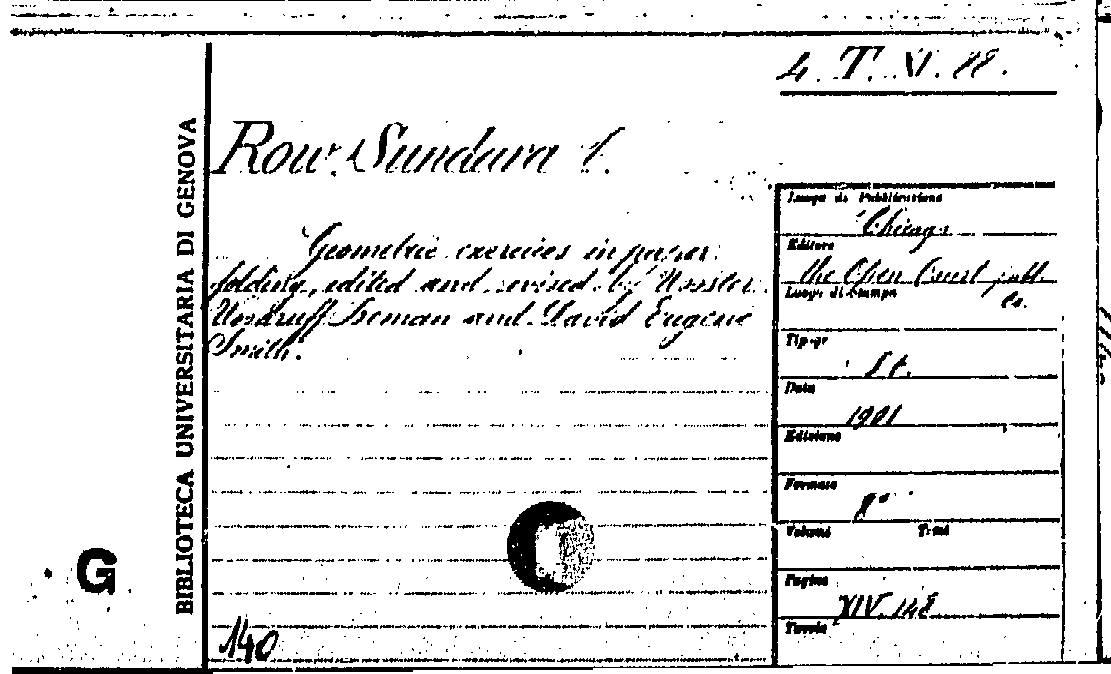 4. T. XI. 88.
BIBLIOTECA UNIVERSITARIA DI GENOVA
Row, Sundara
Geometric exercises in paper
folding, edited and revised by Wooster
Woodruff Beman and David Eugene
Smith.
G
140
Luogo di Pubblicazione
Chicago
Editore
the Open Court publ.
Co.
Luogo di Stampa
Tip-gr
Data
1901
Edizione
Formato
8°
Volumi
Pagine
XIV. 148
Tavole